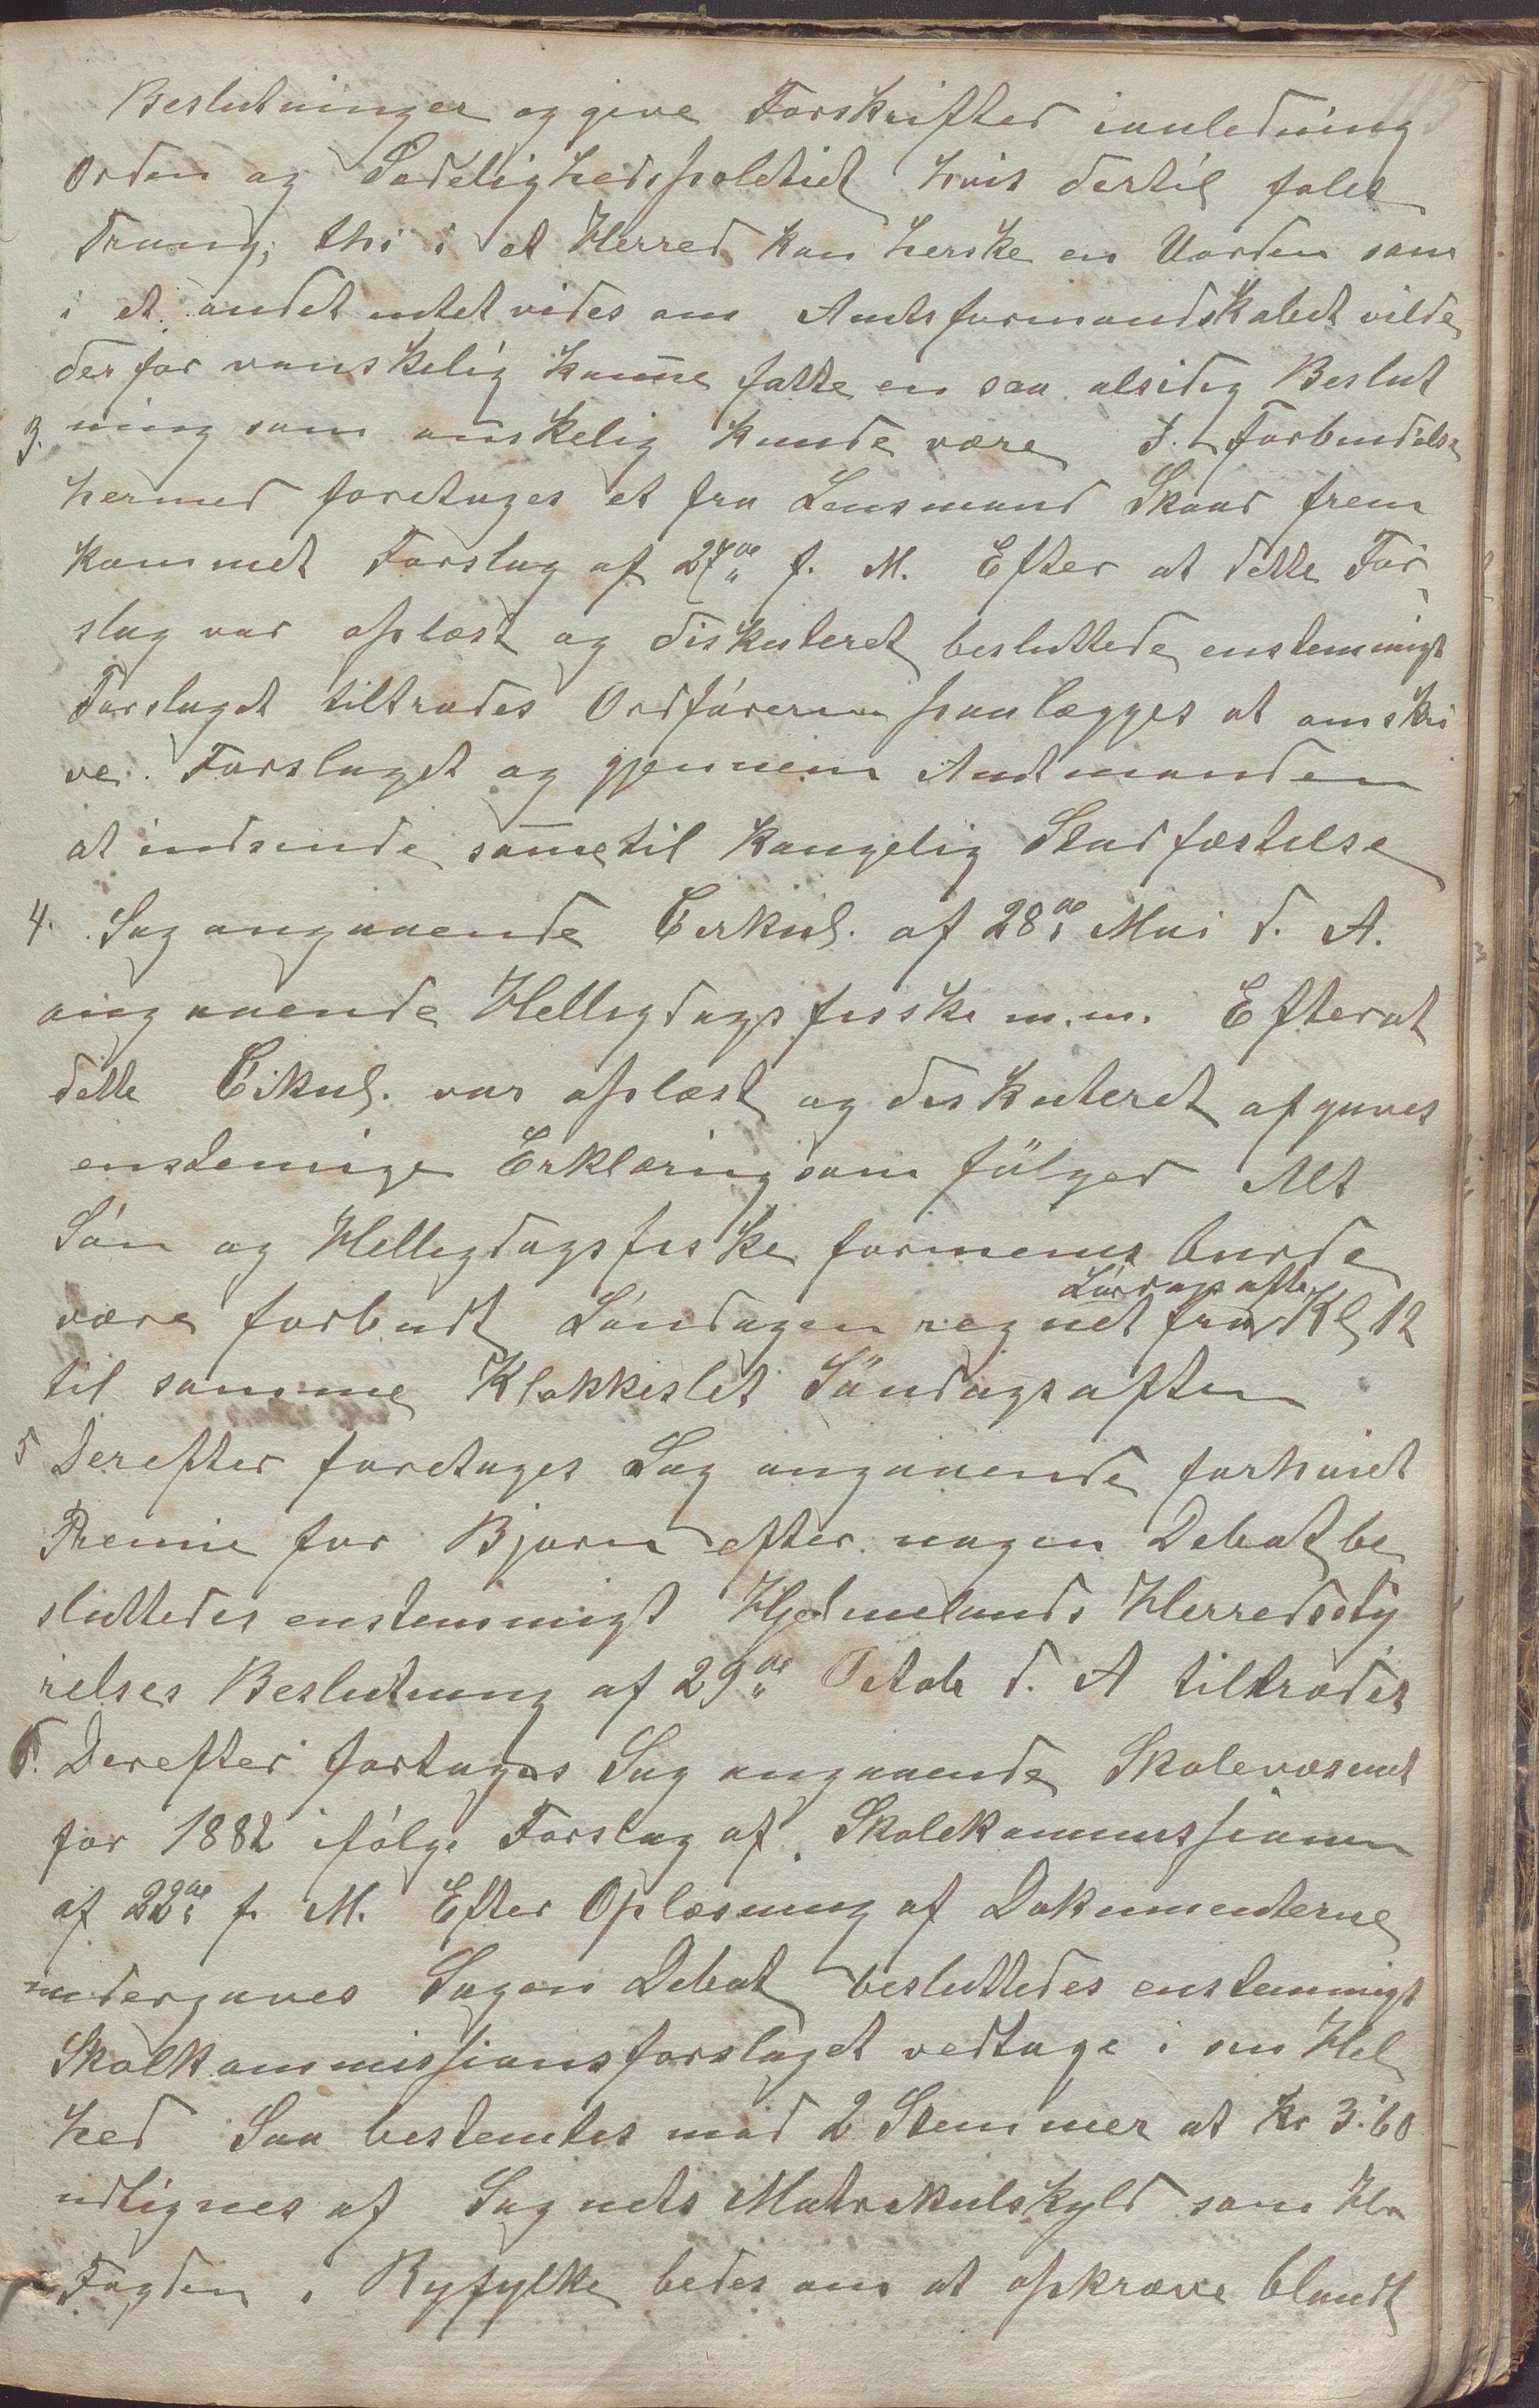 Beslutninger og give Forskrifter ianledning
Orden og Sædelighedspoletiet hvis dertil føles
Trang; thi i et Herred kan herske en Uorden som
i et andet intet vides om Amtsformandskabet vilde
derfor vanskelig kunne fatte en saa alsidig Beslut
3. ning som ønskelig kunde være I. Forbindelse
hermed foretages et fra Lensmand Skaar frem
kommet Forslag af 27de f. M. Efter at dette For
slag var oplæst og diskuteret besluttede enstemmigt
Forslaget tiltrædes Ordføreren paalægges at omskri
ve Forslaget og gjennem Amtmanden
at indsende samme til kongelig Stadfæstelse
4. Sag angaaende Cirkul. af 28de Mai d. A.
angaaende Helligdagsfiske m.m. Efterat
dette Cikul. var oplæst og diskuteret afgaves
enstemige Erklæring som følger Alt
Søn og Helligdagsfiske formenes burde
være forbudt Søndagen regnet fra Lørdagsaften Kl 12
til samme Klokkeslet Søndagsaften
5 Derefter foretages Sag angaaende forhøiet
Premie for Bjørn efter nogen Debat be
sluttedes enstemmigt Hjelmelands Herredssty
relses Beslutning af 29de Octob d. A tiltrædes
6. Derefter fortages Sag angaaende Skolevæsenet
for 1882 ifølge Forslag af Skolekommissionen
af 22de f. M. Efter Oplæsning af Dokumenterne
undergaves Sagen Debat besluttedes enstemmigt
Skolkommissionsforslaget vedtage i sin Hel
hed Saa bestemtes mod 2 Stemmer at Kr 3.60
udlignes af Sognets Matrikulskyld som Hr
Fogden i Ryfylke bedes om at opkræve blandt